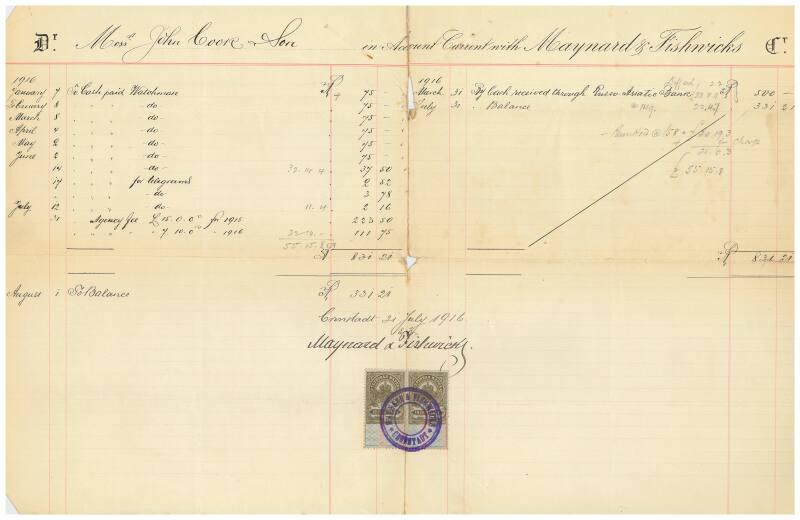 Dr. Messrs John Cook & Son in Account Current with Maynard & Fishwicks Cr.
1916
January 7 To Cash paid Watchman R 75 -
February 8 " " " -do- 75 -
March 8 " " " -do- 75 -
April 4 " " " -do- 75 -
May 2 " " " -do- 75 -
June 2 " " " -do- 75 -
14 " " " -do- 37 50
17 " " " for telegrams 2 52
" " " " -do- 3 78
July 12 " " " -do- 11.4 2 16
31 " Agency fee £ 15.0.0 for 1915 223 50
" " " " 7.10.0 " 1916 111 75
55.15.8
R 831 21
1916
March 31 By Cash received through Russo Asiatic Bank R 500 -
July 31 " Balance 331 21
55.15.8
R 831 21
August 1 To Balance R 331 21
Cronstadt 31 July 1916
Maynard & Fishwicks.
MAYNARD & FISHWICKS
CRONSTADT